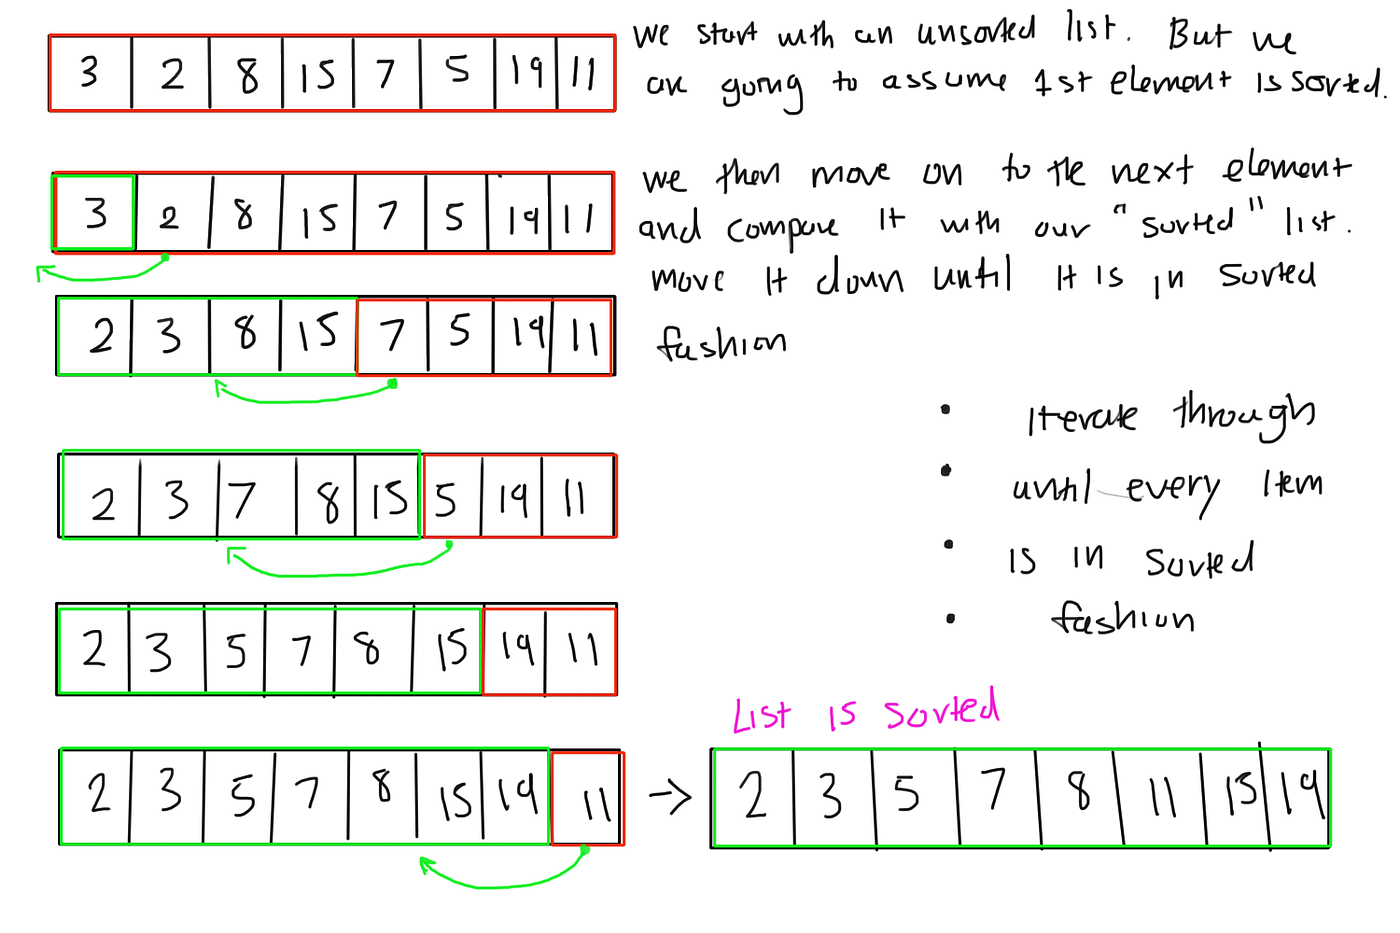 3 2 8 15 7 5 19 11
we start with an unsorted list. But we
are going to assume 1st element is sorted.
3 2 8 15 7 5 19 11
we then move on to the next element
and compare it with our "sorted" list.
move it down until it is in sorted
fashion
2 3 8 15 7 5 19 11
• iterate through
• until every item
• is in sorted
• fashion
2 3 7 8 15 5 19 11
2 3 5 7 8 15 19 11
List is sorted
2 3 5 7 8 15 19 11 → 2 3 5 7 8 11 15 19